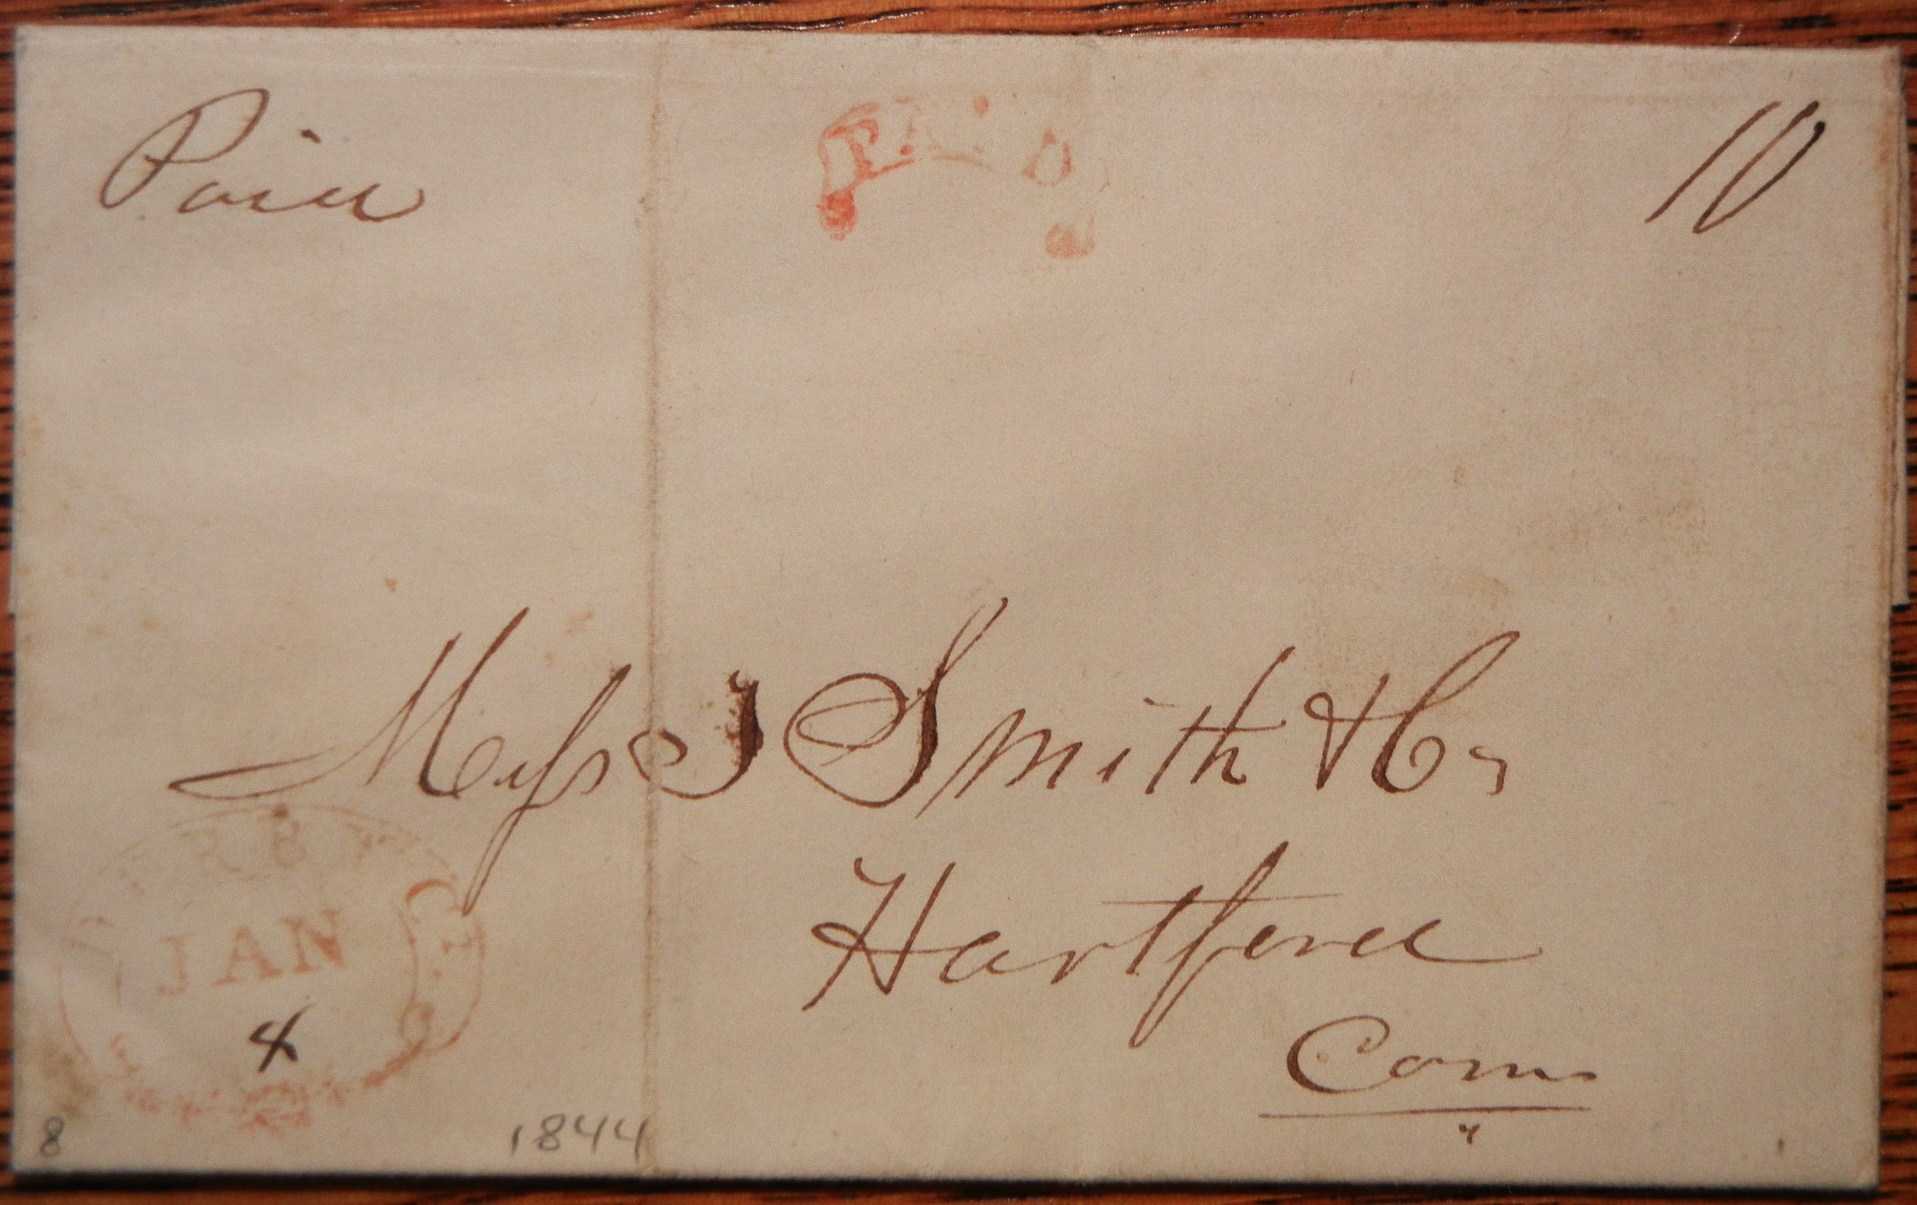 Paid
PAID
10
Mess J Smith & Co
Hartford
Conn
JAN
4
8
1844